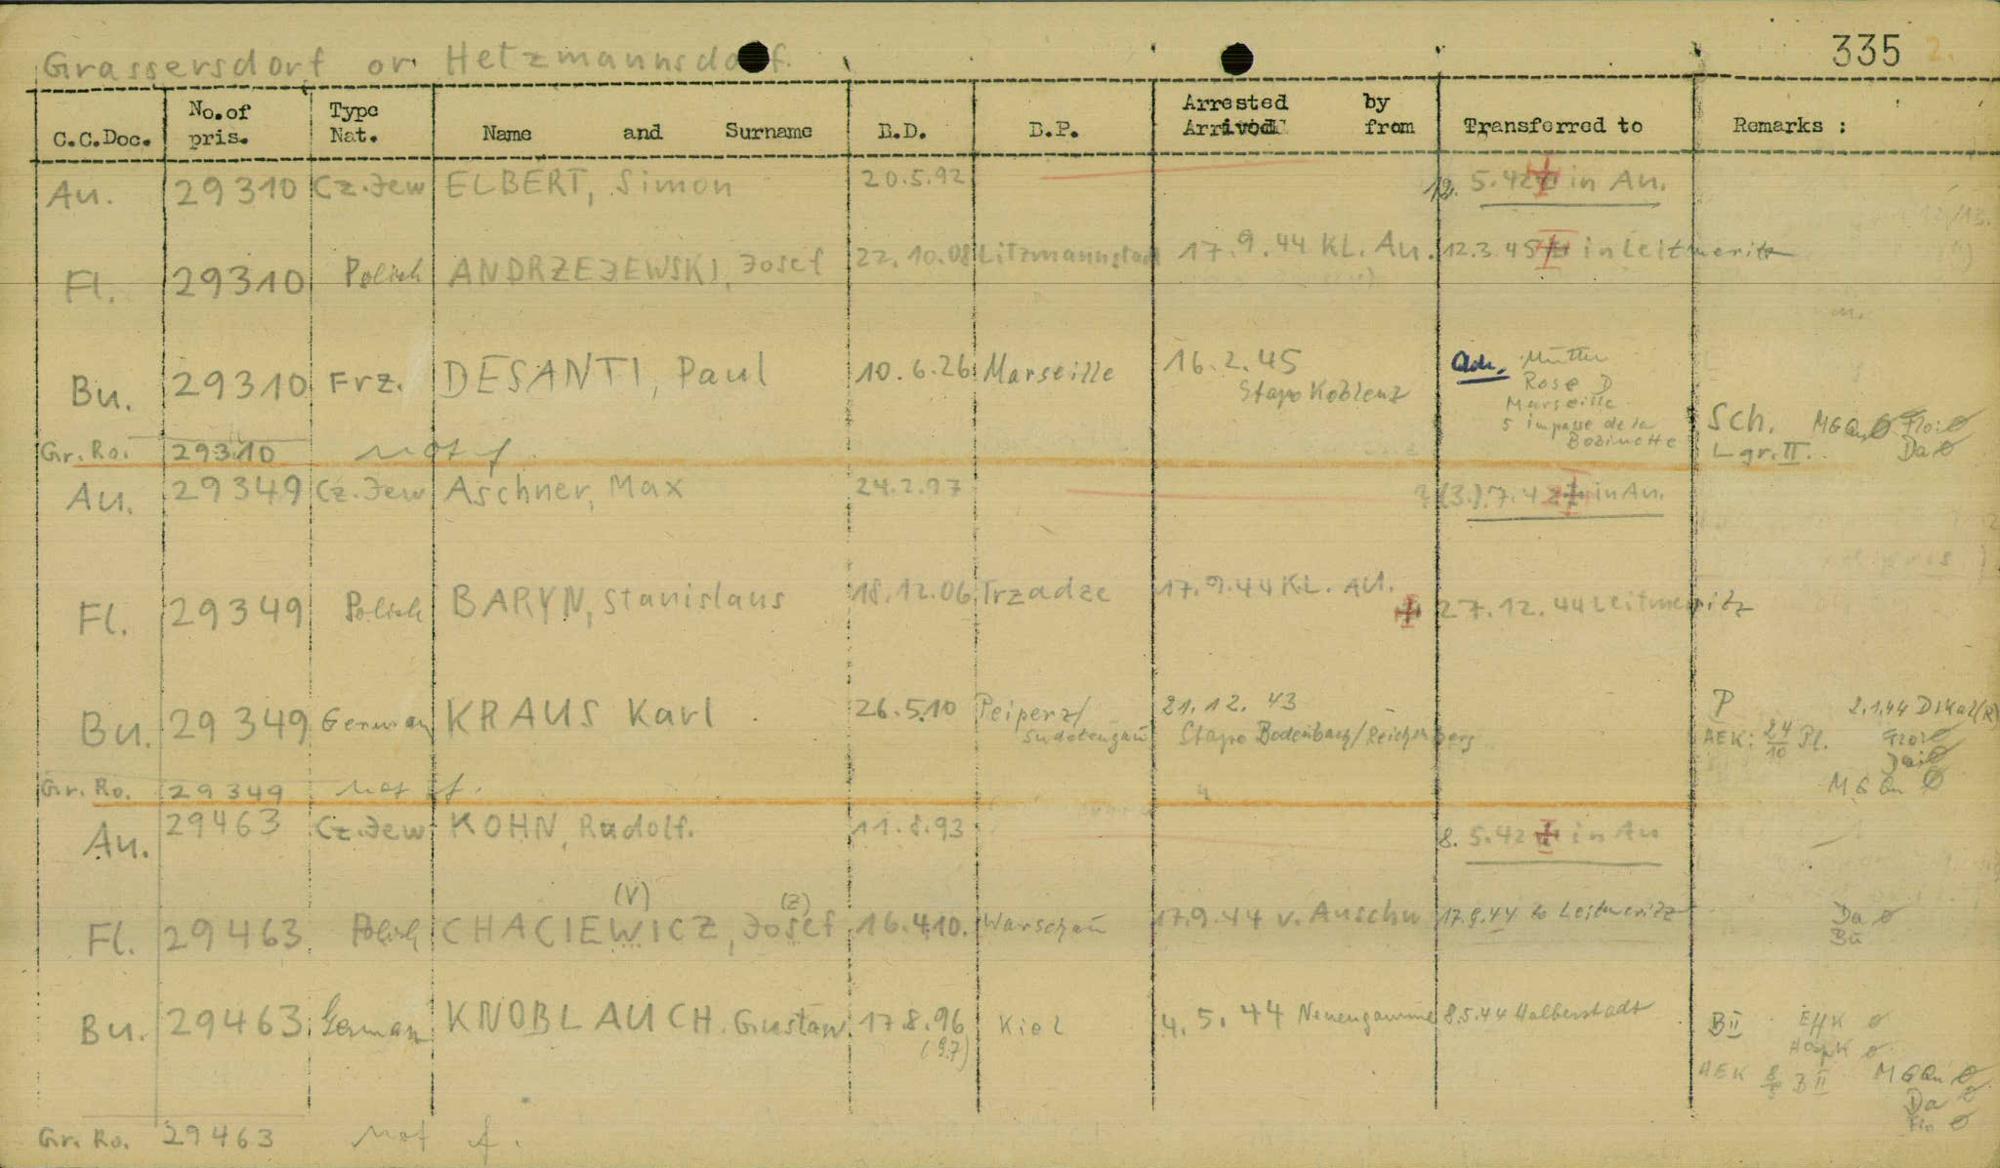 Grassersdorf or Hetzmannsdorf.
335 2.
C.C.Doc. No.of pris. Type Nat. Name and Surname B.D. B.P. Arrested by Arrived from Transferred to Remarks :
Au. 29310 Cz.Jew ELBERT, Simon 20.5.92 12. 5.42 + in Au.
Fl. 29310 Polish ANDRZEJEWSKI, Josef 22.10.08 Litzmannstadt 17.9.44 KL. Au. 12.3.45 + in Leitmeritz
Bu. 29310 Frz. DESANTI, Paul 10.6.26 Marseille 16.2.45
Stapo Koblenz
Mutter
Rose D
Marseille
5 impasse de la
Sch.
Lgr.II.
MGQu Ø Flo: Ø
Da Ø
Gr.Ro. 29310 not f.
Au. 29349 Cz.Jew Aschner, Max 24.2.97 ? (3.).7.42 + in Au.
Fl. 29349 Polish BARYN, Stanislaus 18.12.06 Trzadze 17.9.44 KL. AU. + 27.12.44 Leitmeritz
Bu. 29349 German KRAUS Karl 26.5.10 Peiperz/
Sudetengau
21.12.43
Stapo Bodenbach/Reichenberg
P
AEK: 24/10 Pl.
MGQu Ø
Gr.Ro. 29349 not f.
Au. 29463 Cz.Jew KOHN, Rudolf. 11.8.93 8. 5.42 + in Au
(V) (Z)
Fl. 29463 Polish CHACIEWICZ, Josef 16.4.10. Warschau 17.9.44 v. Auschw 17.9.44 to Leitmeritz
Da Ø
Bu
Bu. 29463 German KNOBLAUCH. Gustav. 17.8.96 Kiel 4.5.44 Neuengamme 8.5.44 Halberstadt
(97)
BII EffK Ø
HospK Ø
AEK 8/8 BII MGQu Ø
Da Ø
Flo Ø
Gr.Ro. 29463 not f.